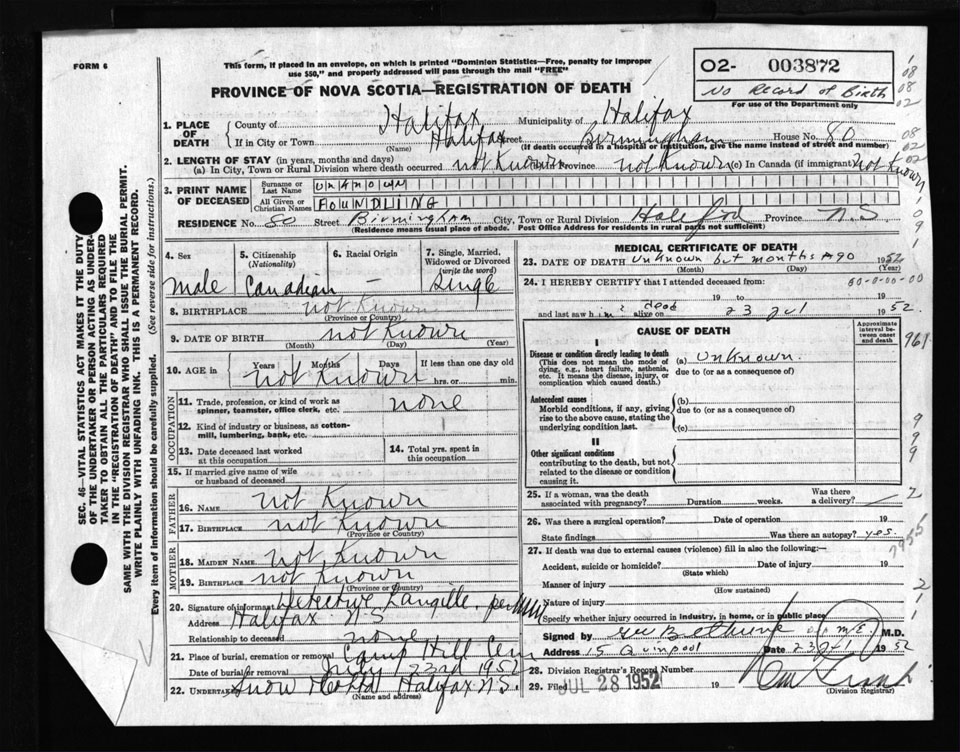 FORM 6
This form, if placed in an envelope, on which is printed "Dominion Statistics—Free, penalty for improper
use $50," and properly addressed will pass through the mail "FREE"
O2- 003872
No Record of Birth
For use of the Department only
PROVINCE OF NOVA SCOTIA—REGISTRATION OF DEATH
1. PLACE OF DEATH
County of Halifax Municipality of Halifax
If in City or Town Halifax Street Birmingham House No. 80
(Name) (If death occurred in a hospital or institution, give the name instead of street and number)
2. LENGTH OF STAY (in years, months and days)
(a) In City, Town or Rural Division where death occurred not Known Province not Known (c) In Canada (if immigrant) Not Known
3. PRINT NAME OF DECEASED
Surname or Last Name UNKNOWN
All Given or Christian Names FOUNDLING
RESIDENCE No. 80 Street Birmingham City, Town or Rural Division Province N.S.
(Residence means usual place of abode. Post Office Address for residents in rural parts not sufficient)
4. Sex male
5. Citizenship (Nationality) Canadian
6. Racial Origin —
7. Single, Married, Widowed or Divorced (write the word) Single
8. BIRTHPLACE not Known
(Province or Country)
9. DATE OF BIRTH not Known
(Month) (Day) (Year)
10. AGE in Years Months Days If less than one day old
not Known hrs. or min.
OCCUPATION
11. Trade, profession, or kind of work as spinner, teamster, office clerk, etc. none
12. Kind of industry or business, as cotton-mill, lumbering, bank, etc.
13. Date deceased last worked at this occupation
14. Total yrs. spent in this occupation
15. If married give name of wife or husband of deceased
FATHER
16. NAME not Known
17. BIRTHPLACE not Known
(Province or Country)
MOTHER
18. MAIDEN NAME not Known
19. BIRTHPLACE not Known
(Province or Country)
20. Signature of informant Detective Langille per
Address Halifax N S
Relationship to deceased none
21. Place of burial, cremation or removal Camp Hill Cem
Date of burial or removal July 23rd 1952
22. UNDERTAKER Snow Halifax N.S.
(Name and address)
MEDICAL CERTIFICATE OF DEATH
23. DATE OF DEATH Unknown but months ago 1952
(Month) (Day) (Year)
24. I HEREBY CERTIFY that I attended deceased from:
19 to 19
and last saw him alive on dead 23 Jul 1952.
CAUSE OF DEATH
Approximate interval between onset and death
I
Disease or condition directly leading to death
(This does not mean the mode of dying, e.g., heart failure, asthenia, etc. It means the disease, injury, or complication which caused death.)
(a) Unknown
due to (or as a consequence of)
Antecedent causes
Morbid conditions, if any, giving rise to the above cause, stating the underlying condition last.
(b)
due to (or as a consequence of)
(c)
II
Other significant conditions
contributing to the death, but not related to the disease or condition causing it.
25. If a woman, was the death associated with pregnancy? Duration weeks. Was there a delivery?
26. Was there a surgical operation? Date of operation 19
State findings Was there an autopsy? yes.
27. If death was due to external causes (violence) fill in also the following:—
Accident, suicide or homicide? Date of injury 19
(State which)
Manner of injury
(How sustained)
Nature of injury
Specify whether injury occurred in industry, in home, or in public place
Signed by M.E. M.D.
Address 15 Quinpool Date 23 Jul 1952
28. Division Registrar's Record Number
29. Filed JUL 28 1952 19
(Division Registrar)
SEC. 46—VITAL STATISTICS ACT MAKES IT THE DUTY
OF THE UNDERTAKER OR PERSON ACTING AS UNDER-
TAKER TO OBTAIN ALL THE PARTICULARS REQUIRED
IN THE "REGISTRATION OF DEATH" AND TO FILE THE
SAME WITH THE DIVISION REGISTRAR WHO SHALL ISSUE THE BURIAL PERMIT.
WRITE PLAINLY WITH UNFADING INK. THIS IS A PERMANENT RECORD.
Every item of information should be carefully supplied. (See reverse side for instructions.)